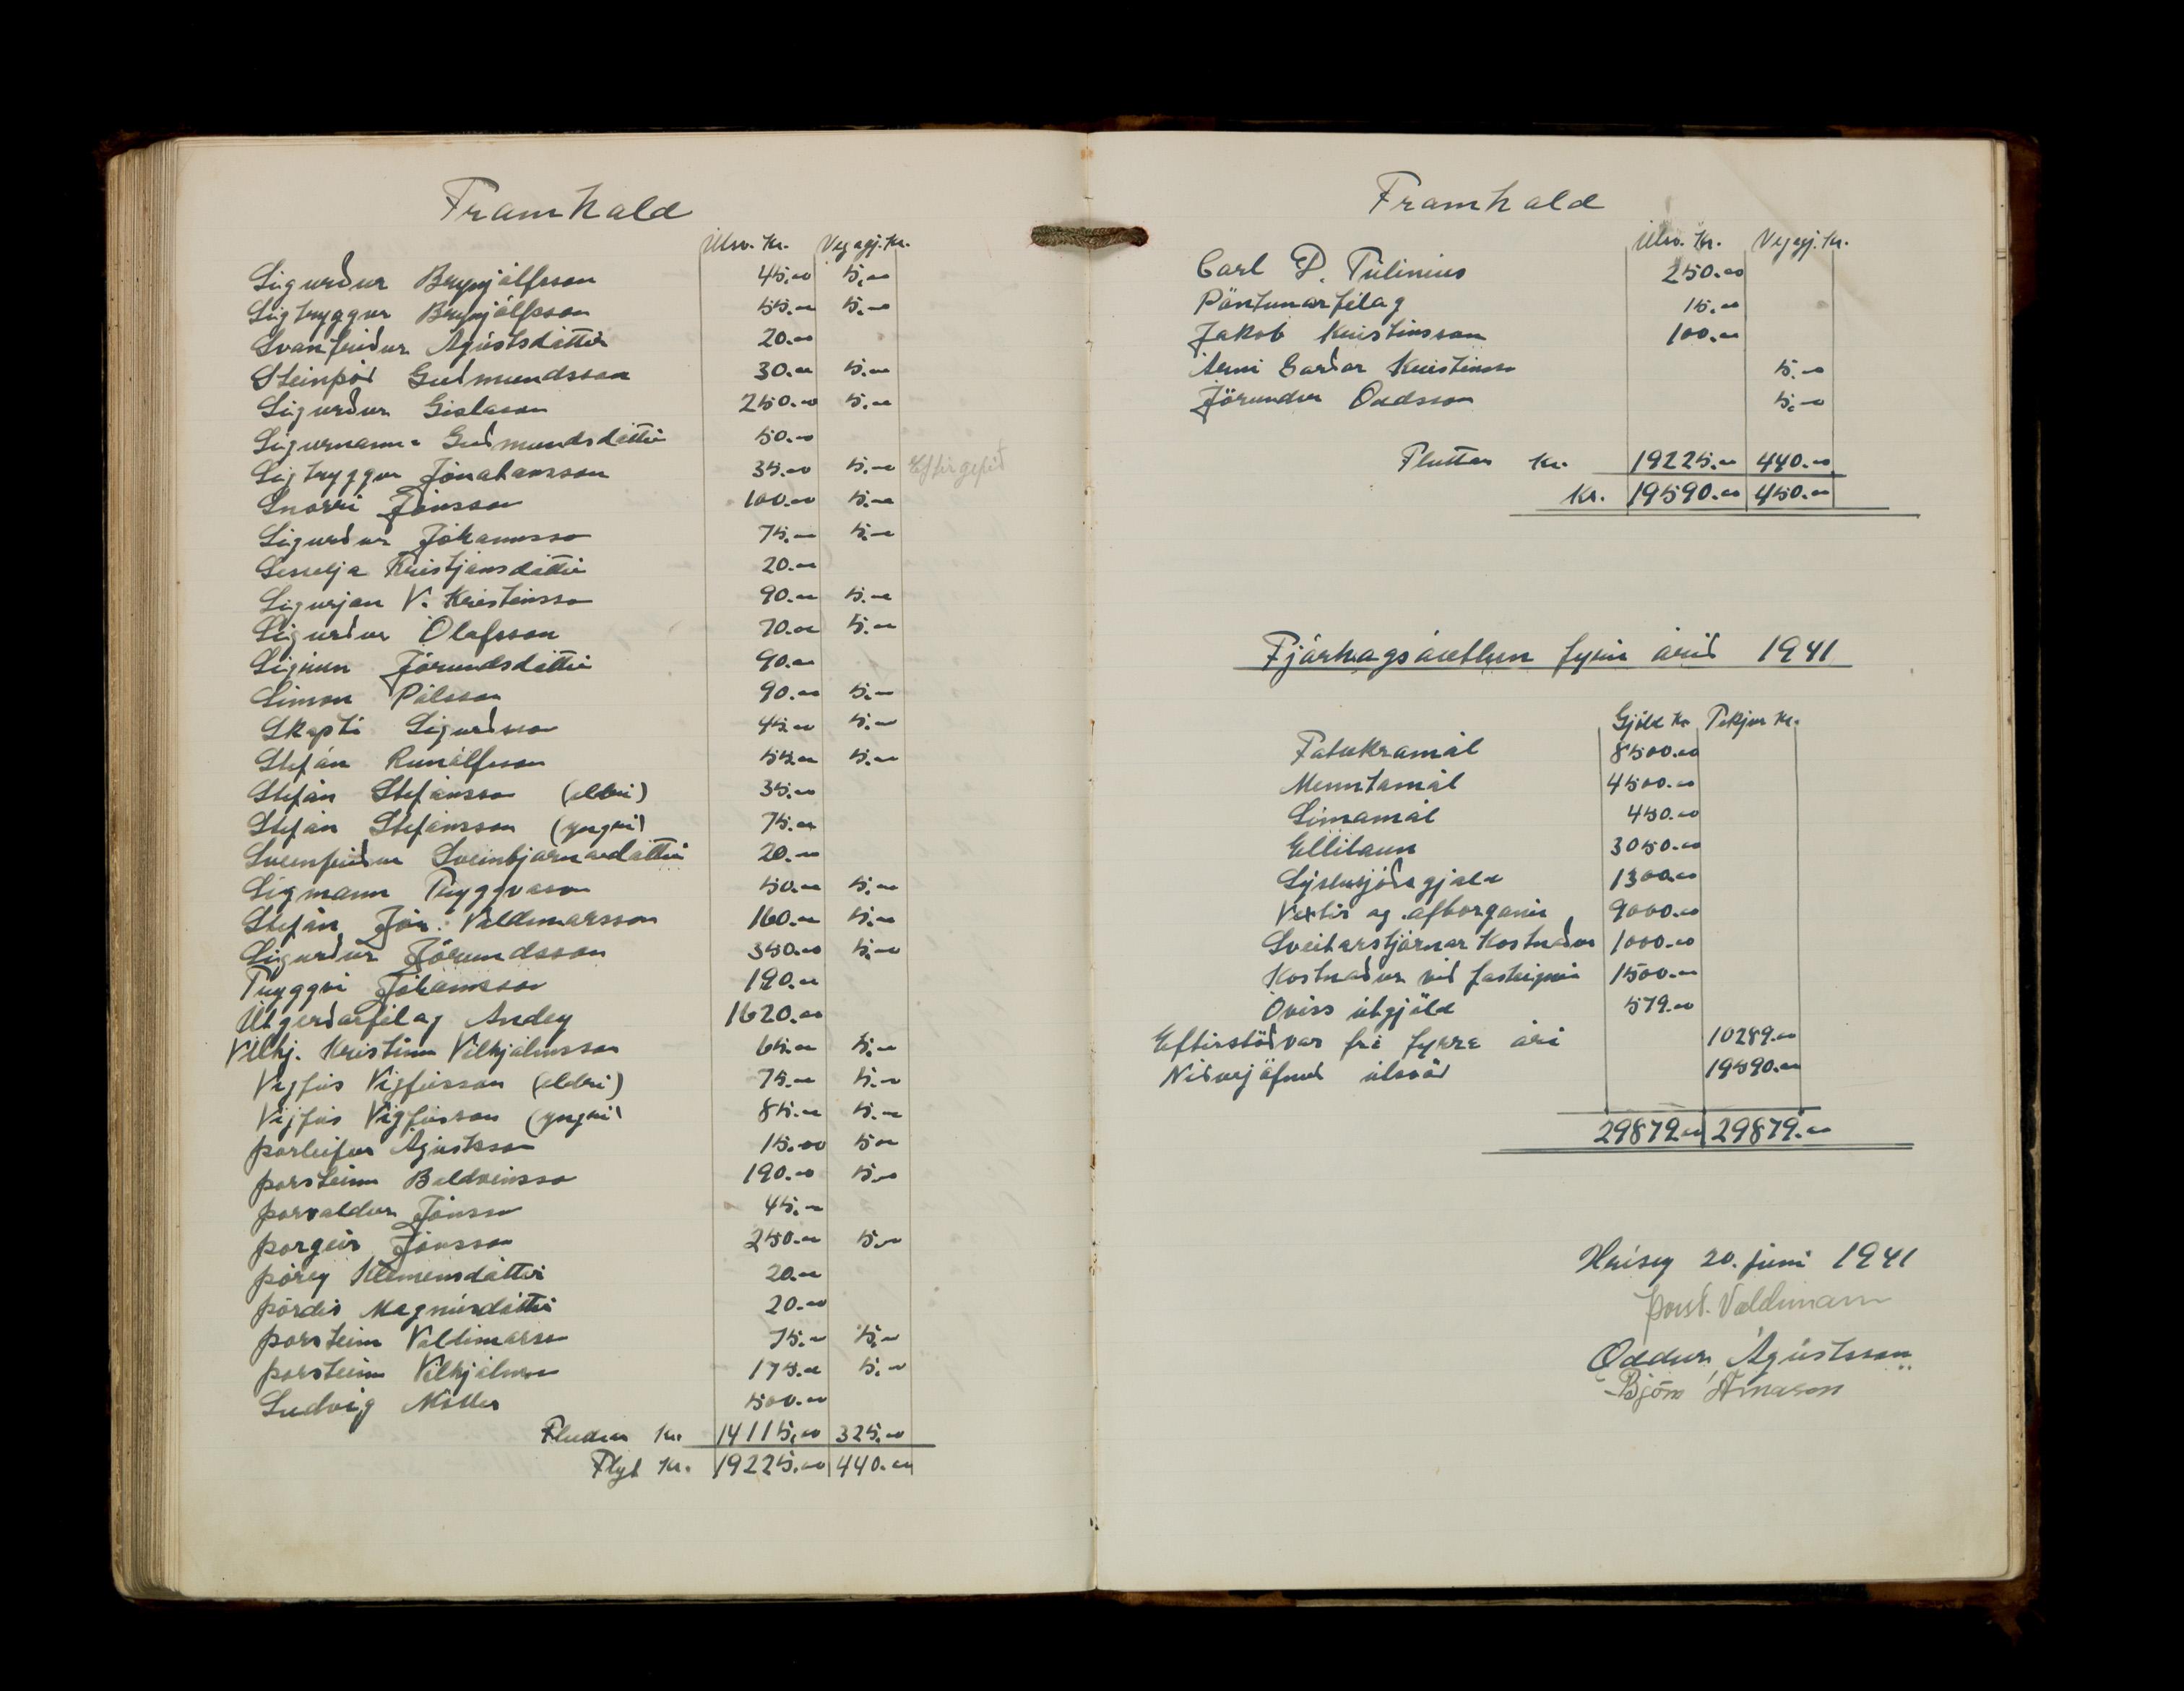 Framhald
Útsv. Kr. Vegagj. Kr.
Sigurður Brynjólfsson 45.00 5.00
Sigtryggur Brynjólfsson 55.00 5.00
Svanfríður Ágústsdóttir 20.00
Steinþór Guðmundsson 30.00 5.00
Sigurður Gíslason 250.00 5.00
Sigurnanna Guðmundsdóttir 50.00
Sigtryggur Jónatansson 35.00 5.00 Eftirgefið
Snorri Jónsson 100.00 5.00
Sigurður Jóhannsso 75.00 5.00
Sesselja Kristjánsdóttir 20.00
Sigurjón V. Kristinsso 90.00 5.00
Sigurður Ólafsson 70.00 5.00
Sigrún Jörundsdóttir 90.00
Símon Pálsson 90.00 5.00
Skapti Sigurðsso 45.00 5.00
Stefán Runólfsson 55.00 5.00
Stefán Stefánsso (eldri) 35.00
Stefán Stefánsson (yngri) 75.00
Sveinfríður Sveinbjarnardóttir 20.00
Sigmann Tryggvason 50.00 5.00
Stefán Jón: Valdemarsson 160.00 5.00
Sigurður Jörundsson 350.00 5.00
Tryggvi Jóhannsson 190.00
Útgerðarfélag Andey 1620.00
Vilhj. Kristinn Vilhjálmsson 65.00 5.00
Vigfús Vigfússon (eldri) 75.00 5.00
Vigfús Vigfússon (yngri) 85.00 5.00
Þorleifur Ágústsson 15.00 5.00
Þorsteinn Baldvinsso 190.00 5.00
Þorvaldur Jónsso 45.00
Þorgeir Jónsson 250.00 5.00
Þórey Klemensdóttir 20.00
Þórdís Magnúsdóttir 20.00
Þorsteinn Valdimarsso 75.00 5.00
Þorsteinn Vilhjálmsso 175.00 5.00
Ludvig Möller 500.00
Kr. 14115.00 325.00
Flyt Kr. 19225.00 440.00
Framhald
Útsv. Kr. Vegagj. Kr.
Carl D. Túlinius 250.00
Pöntunarfélag 15.00
Jakob Kristinsson 100.00
Árni Garðar Kristinsso 5.00
Jörundur Oddsson 5.00
Fluttar Kr. 19225.00 440.00
Kr. 19590.00 450.00
Fjárhagsáætlun fyrir árið 1941
Gjöld Kr. Tekjur Kr.
Fátækramál 8500.00
Menntamál 4500.00
Símamál 450.00
Ellilaun 3050.00
Sýslusjóðsgjald 1300.00
Vextir og afborganir 9000.00
Sveitarstjórnar Kostnaður 1000.00
Kostnaður við fasteignir 1500.00
Óviss útgjöld 579.00
Eftirstöðvar frá fyrra ári 10289.00
Niðurjöfnuð útsvör 19590.00
29879.00 29879.00
Hrísey 20. júní 1941
Þorst. Valdimarss
Oddur Ágústsson
Björn Árnason